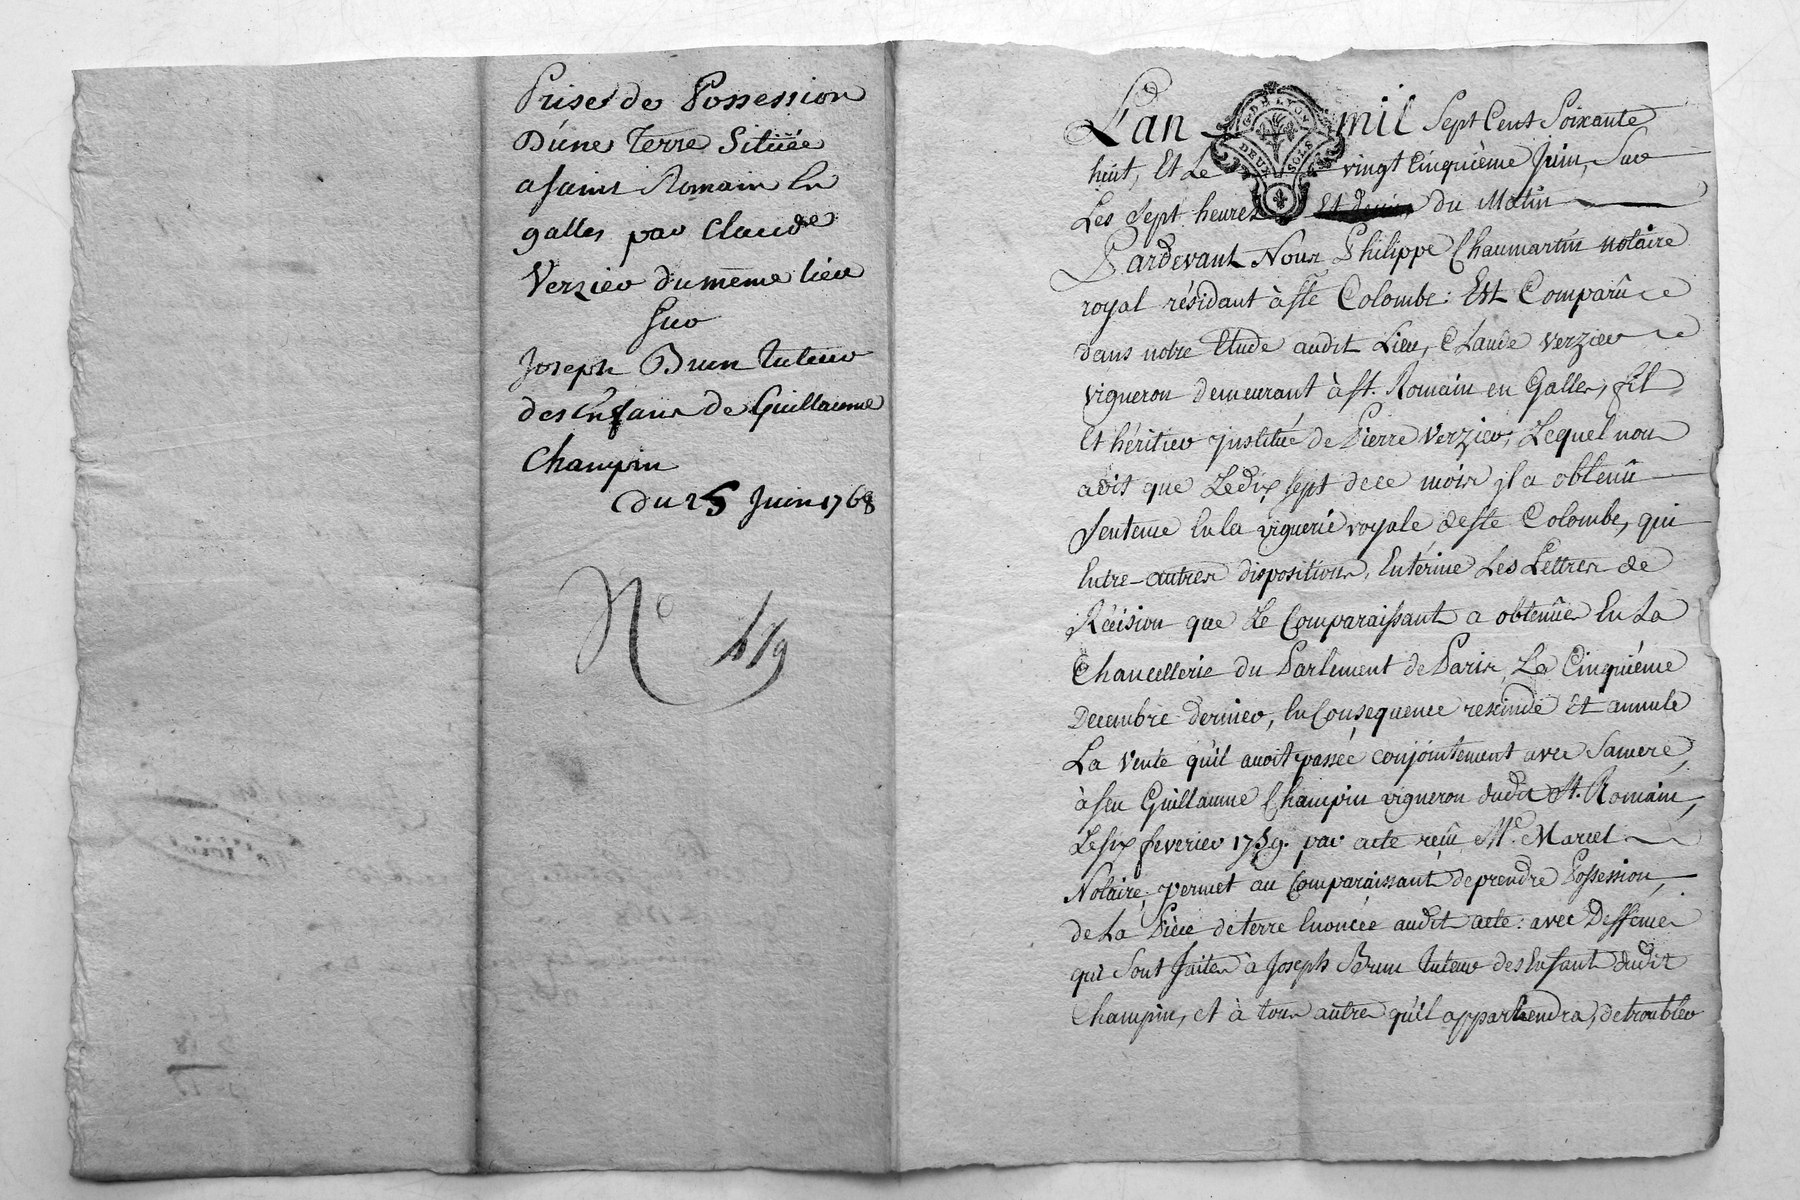 Prise de Possession
D'une Terre Située
a saint Romain En
galles par Claude
Verzieu du même lieu
Sur
Joseph Brun Tuteur
des Enfans de Guillaume
Champin
Du 25 Juin 1768
N° 119
L'an mil Sept Cent Soixante
huit, Et Le vingt Cinquième Juin, Sur
Les Sept heures du Matin
Pardevant Nous Philippe Chaumartin notaire
royal résidant à ste Colombe: Est Comparû
dans notre Etude audit Lieu, Claude Verzieu
vigneron demeurant à st. Romain en Galles, fils
Et héritier jnstitué de Pierre Verzieu, Lequel nous
a dit que Le dix sept de ce mois jl a obtenû
Sentence En la viguerie royale de ste Colombe, qui
Entre-autres dispositions, Entérine Les Lettres de
Récision que Le Comparaissant a obtenües En La
Chancellerie du Parlement de Paris, Le Cinquiéme
Decembre dernier, En Consequence rescinde Et annule
La Vente qu'il avoit passée conjointement avec Sa mere,
à feu Guillaume Champin vigneron dudit St. Romain,
Le six fevrier 1759. par acte reçû Me. Marcel
Notaire; permet au Comparaissant de prendre Possession,
de La Pièce de terre Enoncée audit acte: avec Deffences
qui Sont faites à Joseph Brun Tuteur des Enfant dudit
Champin, et à tous autres qu'il appartiendra, de troubler
G. DE LYON
DEUX SOLS